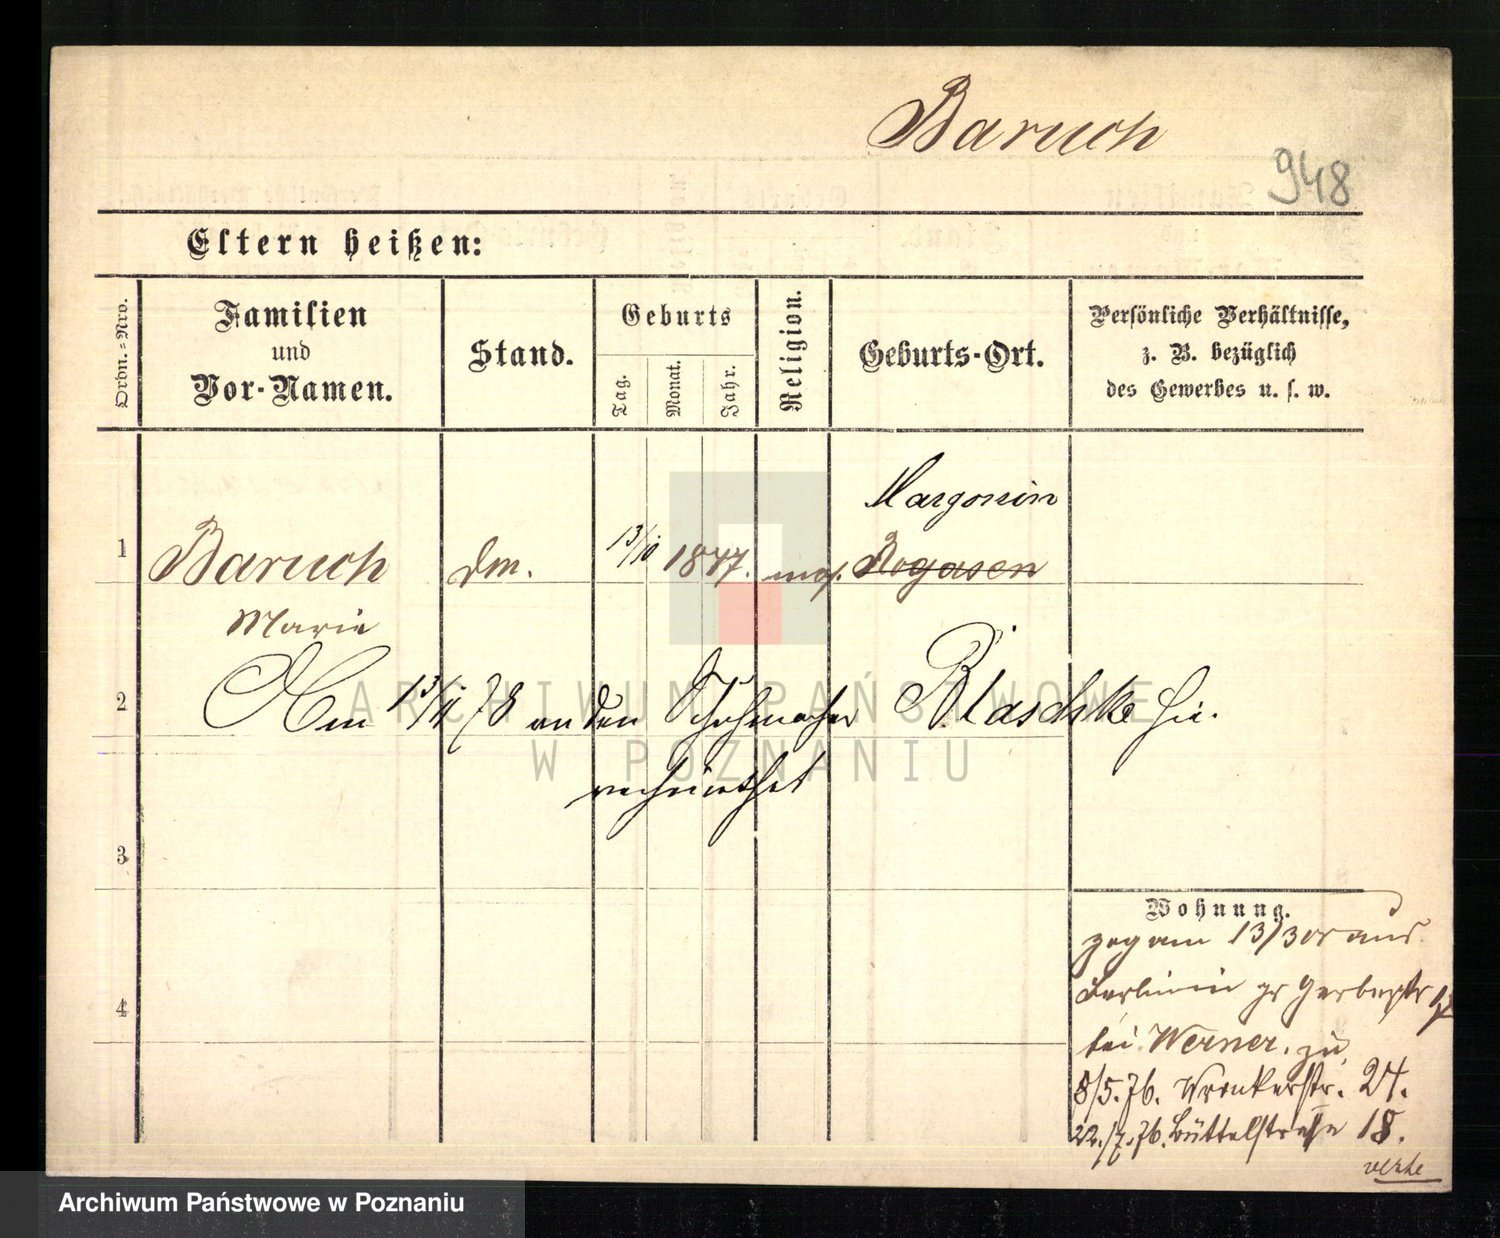 Baruch
948
Eltern heißen:
Ordn.-Nro.
Familien
und
Vor-Namen.
Stand.
Geburts
Tag.
Monat.
Jahr.
Religion.
Geburts-Ort.
Persönliche Verhältnisse,
z. B. bezüglich
des Gewerbes u. s. w.
Margonin
1 Baruch 13/10 mos. Rogasen
Marie
2 Am 13/11 78 an den Schuhmacher Blaschke hie.
verheirathet
3
4
Wohnung.
zog am 13/3 aus
gr Gerberstr
bei Werner. zu
8/5.76. Wronkerstr. 24.
22./7.76. Büttelstraße 18.
ARCHIWUM PAŃSTWOWE
W POZNANIU
Archiwum Państwowe w Poznaniu